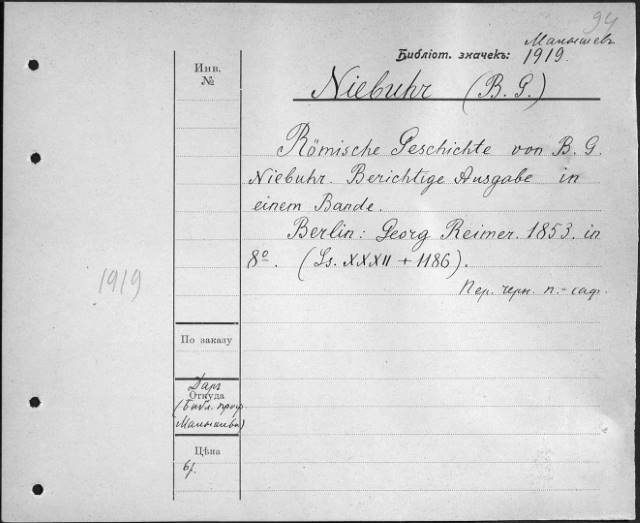 94
Малышевъ
Библіот. значекъ: 1919.
Инв.
№
Niebuhr (B. G.)
Römische Geschichte von B. G.
Niebuhr. Berichtige Ausgabe in
einem Bande.
Berlin: Georg Reimer. 1853. in
8º. (Ss. XXXII + 1186).
1919
Пер. черн. п.-саф.
По заказу
Даръ
Откуда
(Библ. проф.
Малышева)
Цѣна